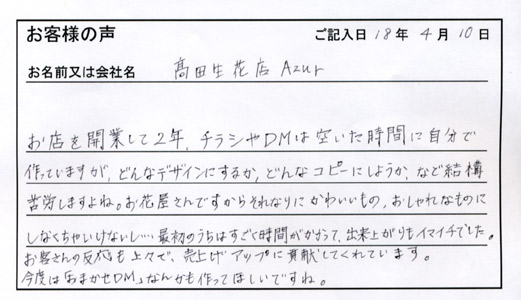 お客様の声
ご記入日 18年 4月 10日
お名前又は会社名 髙田生花店 Azur
お店を開業して2年、チラシやDMは空いた時間に自分で
作っていますが、どんなデザインにするか、どんなコピーにしようか、など結構
苦労しますよね。お花屋さんですからそれなりにかわいいもの、おしゃれなものに
しなくちゃいけないし… 最初のうちはすごく時間がかかって、出来上がりもイマイチでした。
お客さんの反応も上々で、売上げアップに貢献してくれています。
今度は「おまかせDM」なんかも作ってほしいですね。